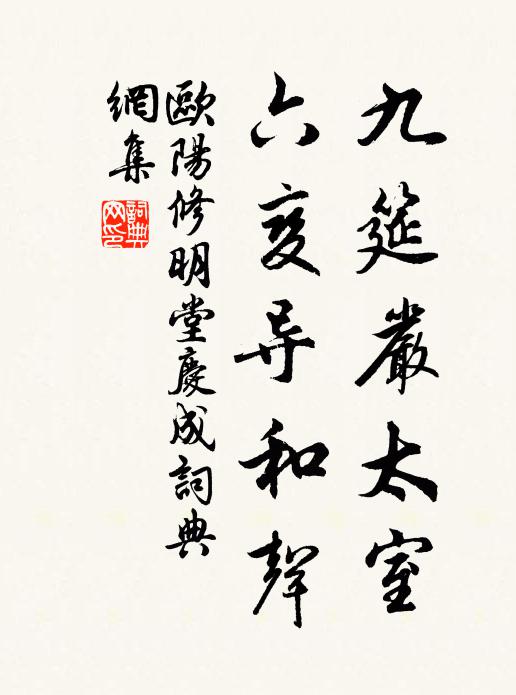 九筵嚴太室
六变导和聲
歐陽修明堂慶成詞典
網集
詞典網印